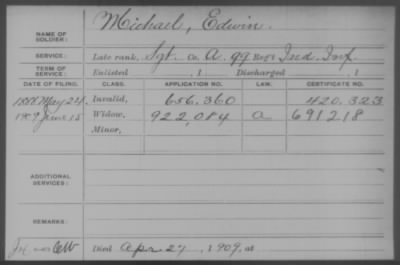 NAME OF SOLDIER: Michael, Edwin.
SERVICE: Late rank, Sgt. Co. A, 99 Reg't Ind. Inf.
TERM OF SERVICE: Enlisted , 1 Discharged , 1
DATE OF FILING. CLASS. APPLICATION NO. LAW. CERTIFICATE NO.
1888 May 24 Invalid, 656.360 420.323
1909 June 15 Widow, 922,084 a 691218
Minor,
ADDITIONAL SERVICES:
REMARKS:
Died Apr 27, 1909, at